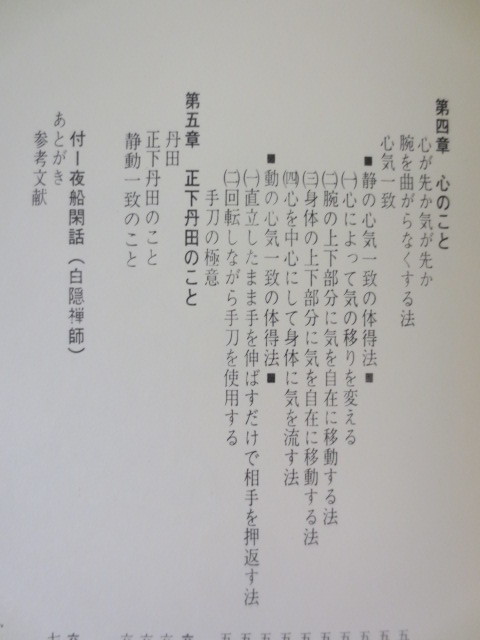 第四章 心のこと
心が先か気が先か
腕を曲がらなくする法
心気一致
■静の心気一致の体得法■
㈠心によって気の移りを変える
㈡腕の上下部分に気を自在に移動する法
㈢身体の上下部分に気を自在に移動する法
㈣心を中心にして身体に気を流す法
■動の心気一致の体得法■
㈠直立したまま手を伸ばすだけで相手を押返す法
㈡回転しながら手刀を使用する
手刀の極意
第五章 正下丹田のこと
丹田
正下丹田のこと
静動一致のこと
付ー夜船閑話(白隠禅師)
あとがき
参考文献